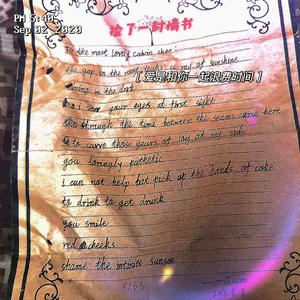 捡了一封情书
PM 5:40
Sep 02 2020
To the most lovely cabin chen:
the gap in the leaks a ray of sunshine
【爱是和你一起浪费时间】
in the
i saw your eyes at first sight
through the time between the seams came here
to carve those years of joy at my side
you lovingly pathetic
i can not help but pick up the hands of coke
to drink to get drunk
you smile
red cheeks
shame the infinite sunset